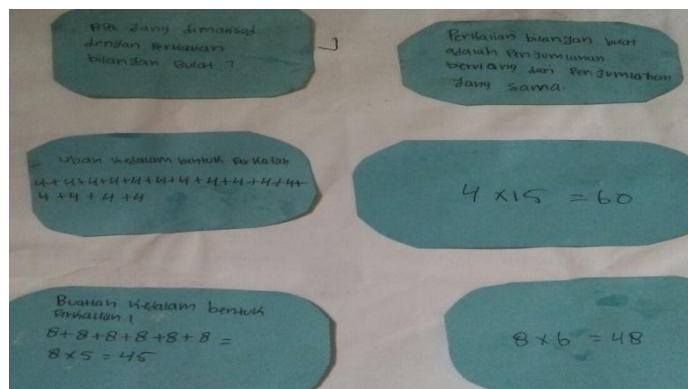 Apa yang dimaksud
dengan Perkalian
bilangan Bulat ?
Perkalian bilangan bulat
adalah Penjumlahan
berulang dari Penjumlahan
yang sama.
Ubah Kedalam bentuk Perkalian
4+4+4+4+4+4+4+4+4+4+4+4+
4+4+4+4
4 x 15 = 60
Buatlah Kedalam bentuk
Perkalian !
8+8+8+8+8+8 =
8 x 5 = 45
8 x 6 = 48